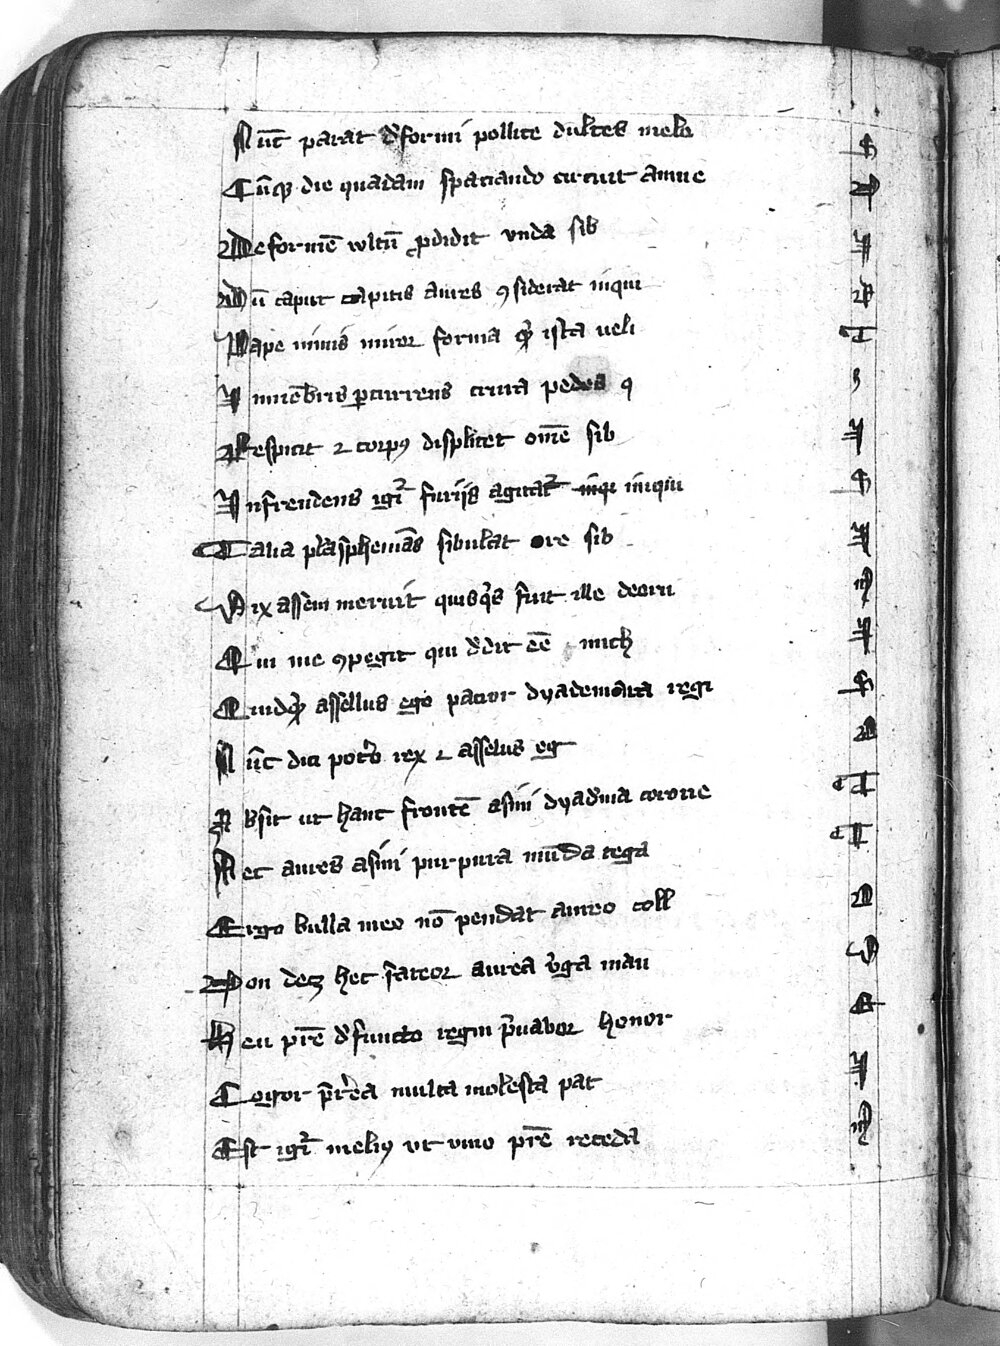 Nūc parat d̄formi pollice dulces melo S
Cūqꝫ die quadam spaciando circuit amne M
Deformē wltū ꝓdidit vnda sib I
Dū caput capitis aures ꝯsiderat inqui T
Pape nimis miror forma qͥ ista veli T
In mēbris ꝑcurrens crura pedes ꝯ s
Respicit ⁊ corpꝰ displicet om̄e sib I
Infrendens igiͬ furijs agitaͬ iniquu S
Talia plasphemās sibulat ore sib I
Vix assem meruit quisqͥs fuit ille deoru M
Qui me ꝯpegit qui d̄dit ēē mich I
Quidqͥ asellus ego pacior dyademata regi S
Nūc dici potͦo rex ⁊ assellus eg O
Absit ut hanc frontē asini dyad̄ma corone T
Nec aures asini purpura mūda tega T
Ergo bulla meo nō pendat aureo coll O
Non decꝫ hec fateor aurea v̄ga man V
Heu pr̄e d̄functo regni pͥuabor honor E
Cogor pr̄ea multa molesta pat I
Est igiͬ meliꝰ vt viuo pr̄e receda M